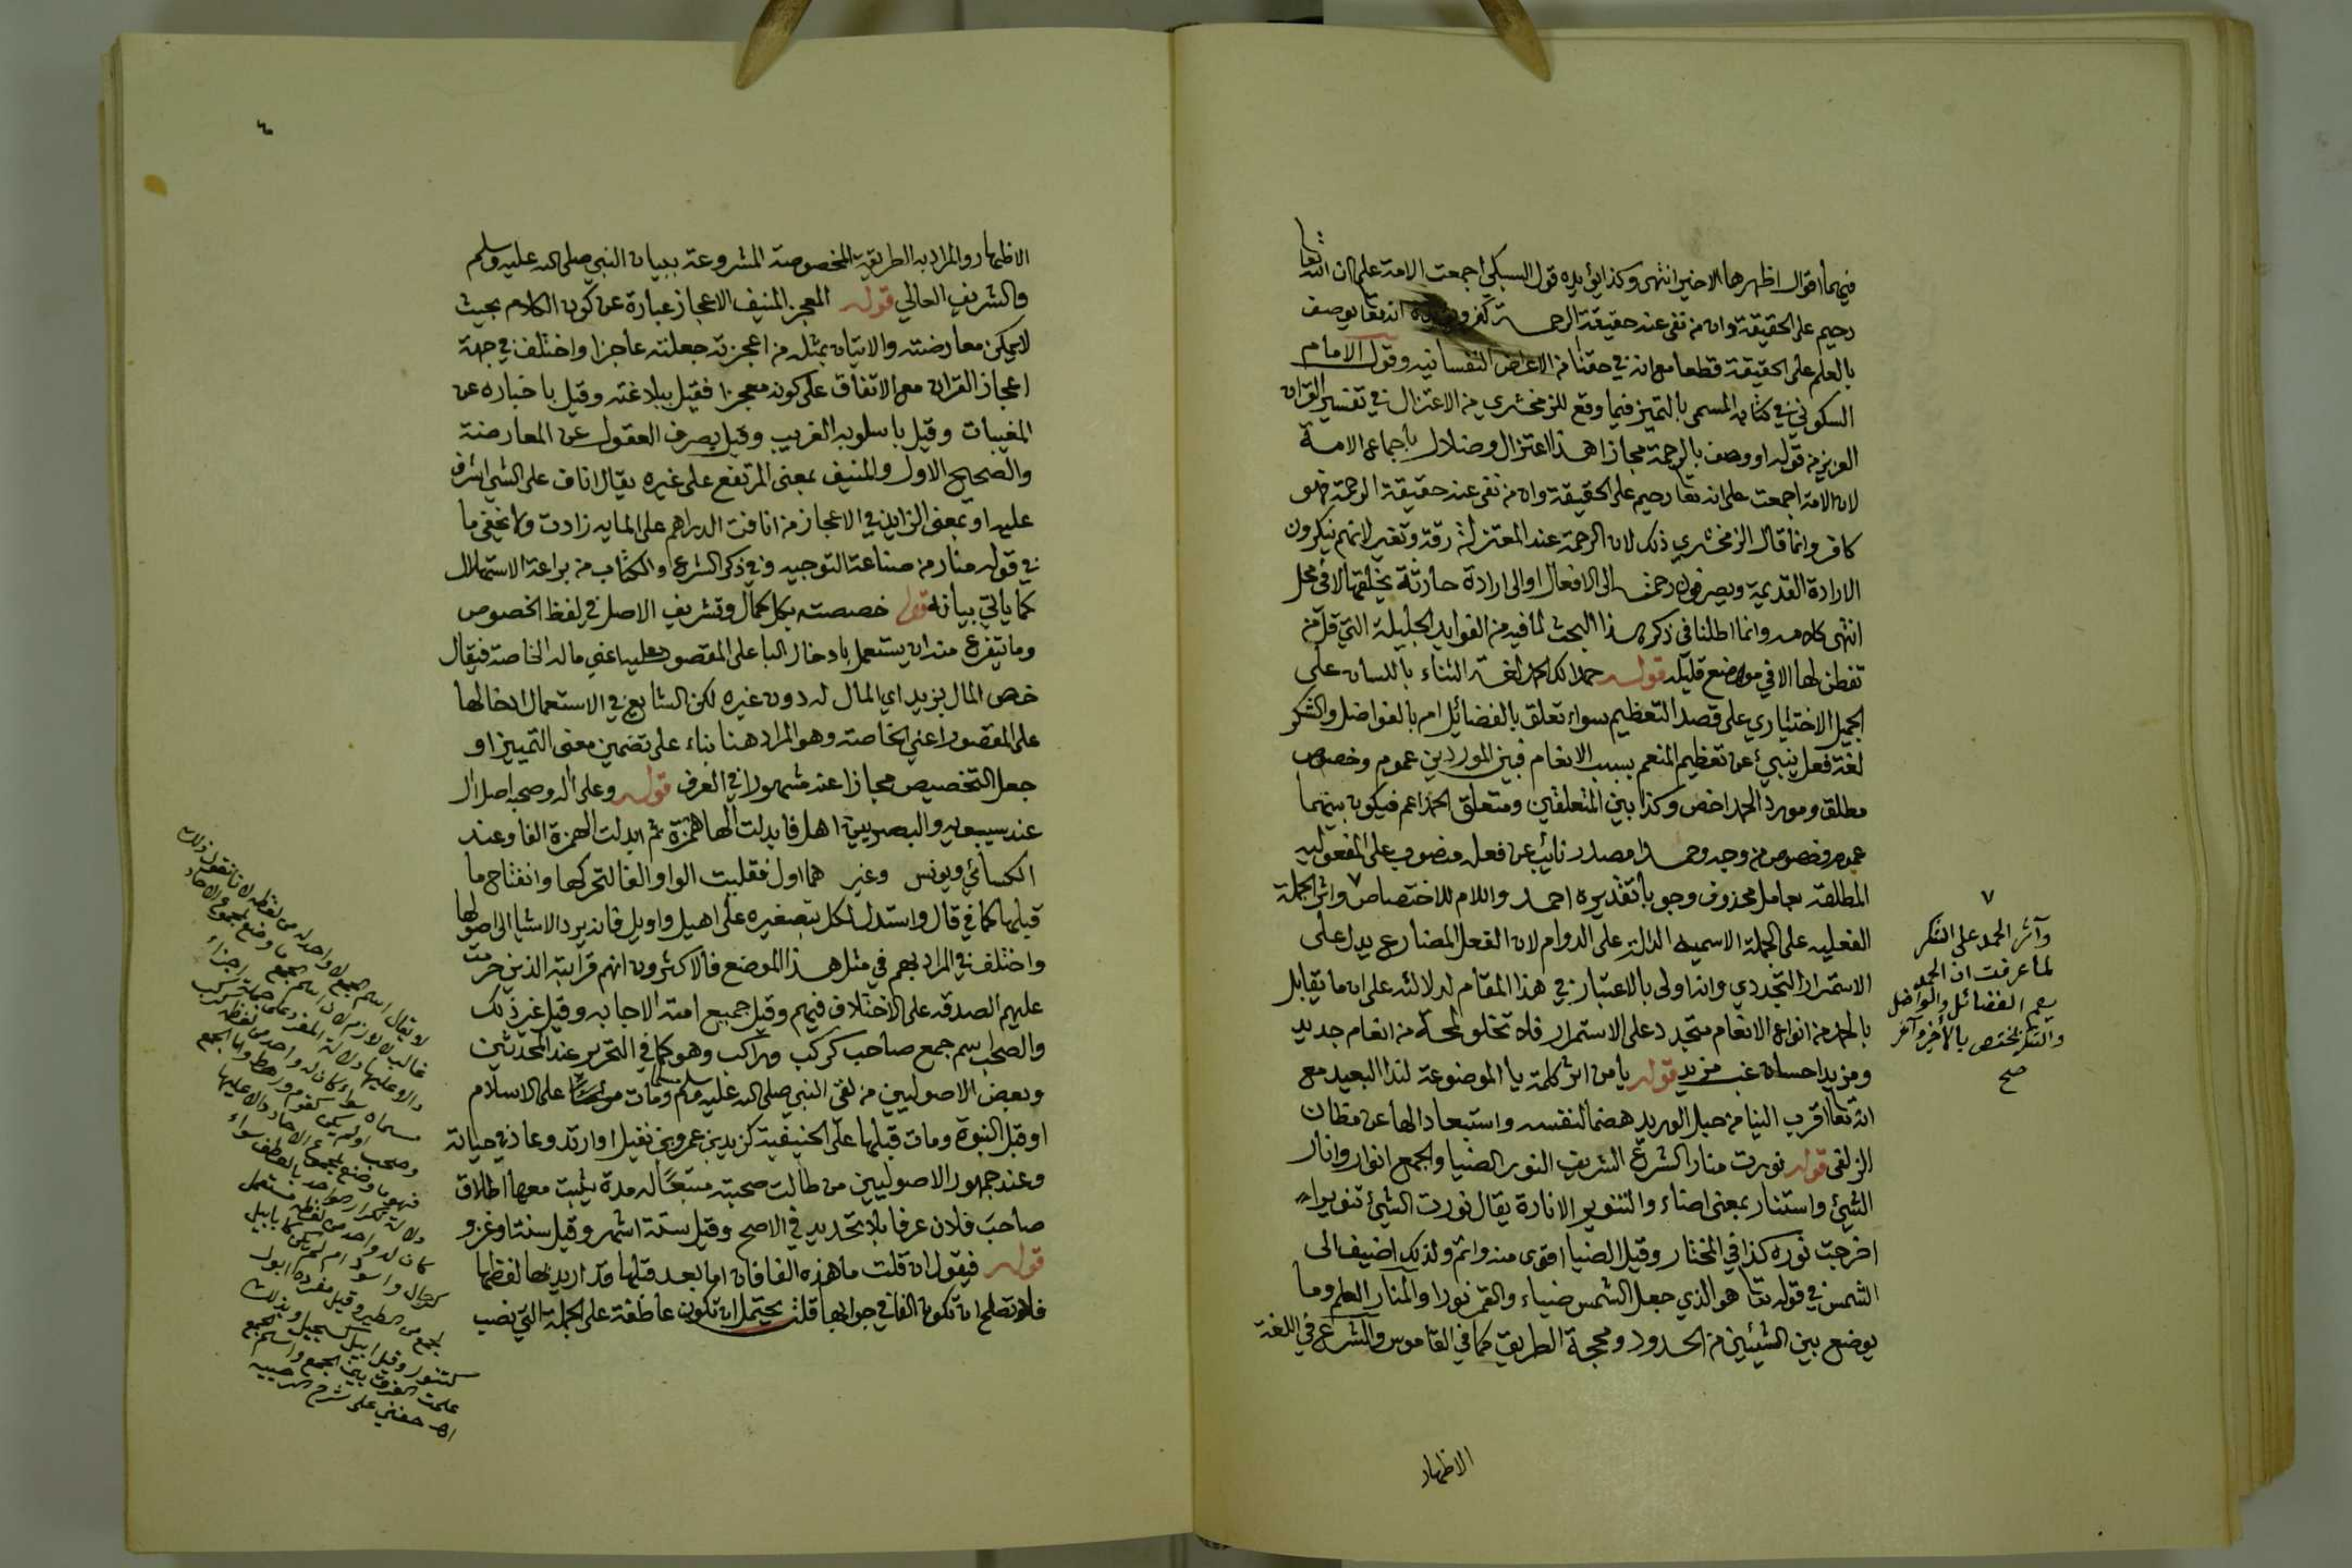 فيهما اقوال اظهرها الاخير انتهى وكذا يؤيده قول السبكي اجمعت الامة على ان الله تعالى
رحيم على الحقيقة وان من نفى عنه حقيقة الرحمة كفر انه تعا يوصف
بالعلم على الحقيقة قطعا مع انه في حقنا من الاعراض النفسانيه وقول الامام
السكوني في كتابه المسمى بالتميز فيما وقع للزمخشري من الاعتزال في تفسير القران
العزيز من قوله او وصف بالرحمة مجازا هذا اعتزال وضلال باجماع الامة
لان الامة اجمعت على انه تعا رحيم على الحقيقة وان من نفى عنه حقيقة الرحمة فهو
كافر وانما قال الزمخشري ذلك لان الرحمة عند المعتزلة رقة وتغير لانهم ينكرون
الارادة القديمة ويصرفون رحمته الى الافعال او الى ارادة حادثة يخلقها لا في محل
انتهى كلامه وانما اطلنا في ذكر هذا البحث لما فيه من الفوايد الجليلة التي قل من
تفطن لها الا في مواضع قليله قوله حمدا لك الحمد لغة الثناء باللسان على
الجميل الاختياري على قصد التعظيم سواء تعلق بالفضائل ام بالفواضل والشكر
لغة فعل ينبئ عن تعظيم المنعم بسبب الانعام فبين الموردين عموم وخصوص
مطلق ومورد الحمد اخص وكذا بين المتعلقين ومتعلق الحمد اعم فيكون بينهما
عموم وخصوص من وجه وحمدا مصدر نائب عن فعله منصوب على المفعوليه
المطلقة بعامل محذوف وجوبا تقديره احمد واللام للاختصاص ٧ واثر الجملة
الفعليه على الجملة الاسميه الدالة على الدوام لان الفعل المضارع يدل على
الاستمرار التجددي وانه اولى بالاعتبار في هذا المقام لدلالته على ان ما يقابل
بالحمد من انواع الانعام متجدد على الاستمرار فلا تخلو لمحة من انعام جديد
ومزيد احسان غب مزيد قوله يا من اثر كلمة يا الموضوعة لندا البعيد مع
انه تعا اقرب الينا من حبل الوريد هضما لنفسه واستبعادا لها عن مظان
الزلفى قوله نورت منار الشرع الشريف النور الضيا والجمع انوار وانار
الشيئ واستنار بمعنى اضاء والتنوير الانارة يقال نورت الشيئ تنويرا
اخرجت نوره كذا في المختار وقيل الضيا اقوى منه واتم ولذلك اضيف الى
الشمس في قوله تعا هو الذي جعل الشمس ضياء والقمر نورا والمنار العلم وما
يوضع بين الشيئين من الحدود ومحجة الطريق كما في القاموس والشرع في اللغة
الاظهار
٧
وآثر الحمد على الشكر
لما عرفت ان الحمد
يعم الفضائل والفواضل
والشكر يختص بالأخير وآثر
صح
الاظهار والمراد به الطريقة المخصوصة المشروعة ببيان النبي صلى الله عليه وسلم
والشريف العالي قوله المعجز المنيف الاعجاز عبارة عن كون الكلام بحيث
لا يمكن معارضته والاتيان بمثله من اعجزته جعلته عاجزا واختلف في جهة
اعجاز القران مع الاتفاق على كونه معجزا فقيل ببلاغته وقيل باخباره عن
المغيبات وقيل باسلوبه الغريب وقيل بصرف العقول عن المعارضة
والصحيح الاول والمنيف بمعنى المرتفع على غيره يقال اناف على الشي اشرف
عليه او بمعنى الزايد في الاعجاز من انافت الدراهم على المايه زادت ولا يخفى ما
في قوله منار من صناعة التوجيه وفي ذكر الشرع والكتاب من براعة الاستهلال
كما ياتي بيانه قوله خصصته بكل كمال وتشريف الاصل في لفظ الخصوص
وما يتفرع منه ان يستعمل بادخال البا على المقصور عليه اعني ماله الخاصة فيقال
خص المال بزيد اي المال له دون غيره لكن الشايع في الاستعمال ادخالها
على المقصور اعني الخاصة وهو المراد هنا بناء على تضمين معنى التمييز او
جعل التخصيص مجازا عنه مشهورا في العرف قوله وعلى اله وصحبه اصل ال
عند سيبويه والبصريين اهل فابدلت الها همزة ثم ابدلت الهمزة الفا وعند
الكسائي ويونس وغيرهما اول فقلبت الواو الفا لتحركها وانفتاح ما
قبلها كما في قال واستدل لكل بتصغيره على اهيل واويل فانه يرد الاشيا الى اصولها
واختلف في المراد بهم في مثل هذا الموضع فالاكثرون انهم قرابته الذين حرمت
عليهم الصدقة على الاختلاف فيهم وقيل جميع امة الاجابه وقيل غير ذلك
والصحب اسم جمع صاحب كركب وراكب وهو كما في التحرير عند المحدثين
وبعض الاصوليين من لقى النبي صلى الله عليه وسلم مسلما ومات على الاسلام
او قبل النبوة ومات قبلها على الحنيفية كزيد بن عمرو بن نفيل او ارتد وعاد في حياته
وعند جمهور الاصوليين من طالت صحبته متبعًا له مدة يثبت معها اطلاق
صاحب فلان عرفا بلا تحديد في الاصح وقيل ستة اشهر وقيل سنة او غزو
قوله فيقول ان قلت ما هذه الفا فان اما بعد قبلها قد اريد بها لفظها
فلا تصلح ان تكون الفا في جوابها قلت يحتمل ان تكون عاطفة على الجملة التي نصب
لا يقال اسم الجمع لا واحد له من لفظه لانا نقول ذلك
غالب لا لازم لان اسم الجمع ما وضع لمجموع الاحاد
دالا عليها دلالة المفرد على جملة اجزاء
مسماه سواء كان له واحد من لفظه كركب
وصحب او لم يكن كقوم ورهط واما الجمع
فهو ما وضع لمجموع الاحاد دالا عليها
دلالة تكرار الواحد بالعطف سواء
كان له واحد من لفظه مستعمل
كرجال واسود ام لم يكن كابابيل
لجمع من الطير وقيل مفرده ابول
كسنور وقيل ابيل كسجيل وبذلك
علمت الفرق بين الجمع واسم الجمع
اهـ حفني على شرح الرحبيه